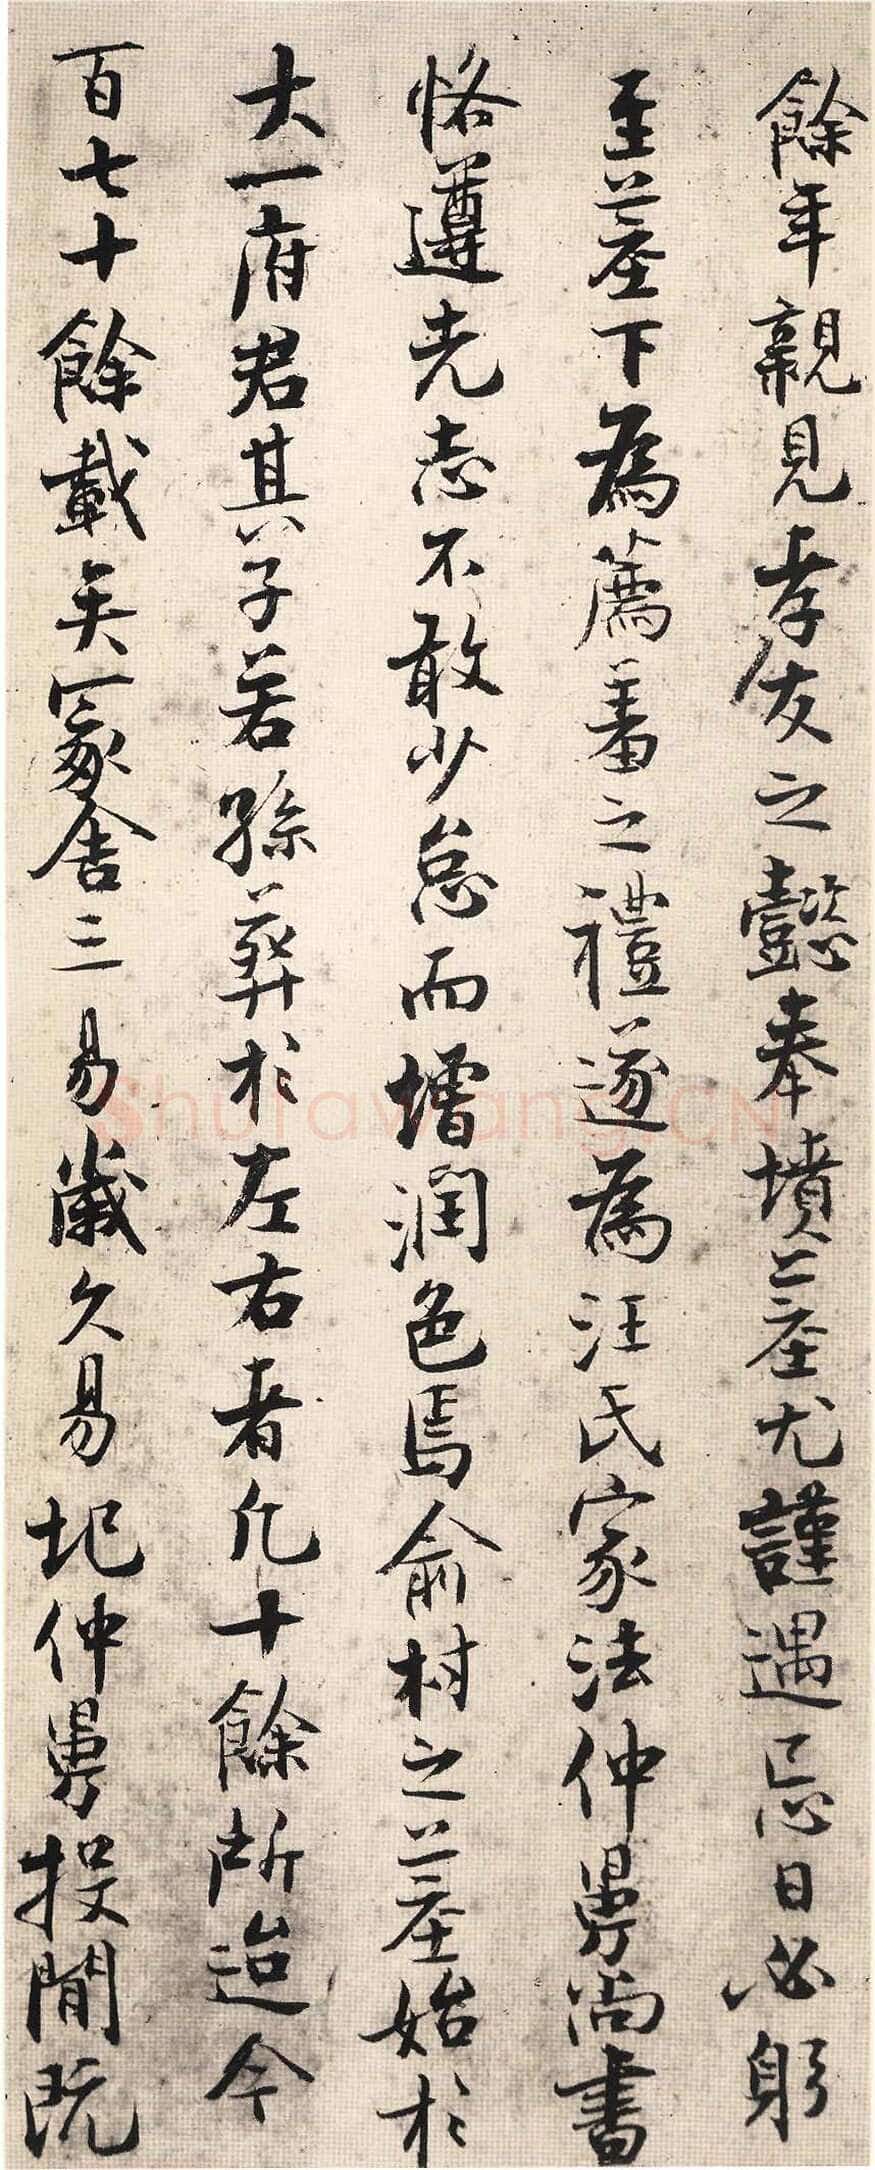 餘年親見孝友之懿奉墳墓尤謹遇忌日必躬
至墓下為薦羞之禮遂為汪氏家法仲舅尚書
恪遵先志不敢少怠而增潤色焉俞村之墓始於
大一府君其子若孫葬於左右者凡十餘所迨今
百七十餘載矣冢舍三易歲久易圮仲舅投閒既
Shufawang.CN